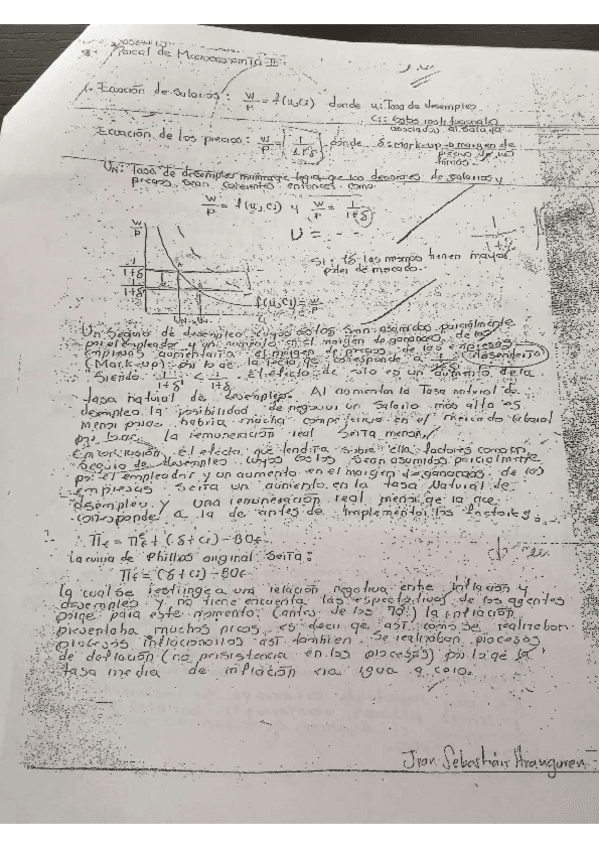 Parcial de Macroeconomía II
1. Ecuación de salarios: W/P = f(u, ci) donde u: Tasa de desempleo
ci: costos institucionales
asociados al salario
Ecuación de los precios: W/P = 1/1+δ donde δ = Mark-up o margen de
precios de las
firmas.
UN: Tasa de desempleo que las decisiones de salarios y
precios sean coherentes entonces como
W/P = f(u, ci) y W/P = 1/1+δ
U = - -
1/1+δ
W/P
si ↑δ las mismas tienen mayor
poder de mercado.
1/1+δ
1/1+δ'
A
f(u, ci) = W/P
Un seguro de desempleo cuyos costos son asumidos parcialmente
por el empleador y un aumento en el margen de ganancias de las
empresas aumentaría el margen de precios de las empresas
(Mark-up) por lo que la recta que corresponde a 1/1+δ (descendería)
Siendo 1/1+δ' < 1/1+δ. El efecto de esto es un aumento de la
tasa natural de desempleo. Al aumentar la Tasa natural de
desempleo la posibilidad de negociar un salario más alto es
menor porque habría mucha competencia en el mercado laboral
por lo que la remuneración real sería menor.
En conclusión, el efecto que tendría sobre ella factores como un
seguro de desempleo cuyos costos sean asumidos parcialmente
por el empleador y un aumento en el margen de ganancias de las
empresas sería un aumento en la tasa Natural de
desempleo y una remuneración real menor que la que
corresponde a la de antes de implementar los factores.
∴ Πt = Πet + (δ + ci) - BUt
La curva de Phillips original sería:
Πt = (δ + ci) - BUt
la cual se restringe a una relación negativa entre inflación y
desempleo y no tiene encuenta las espectativas de los agentes
porque para este momento (antes de los 70') la inflación
presentaba muchos picos, es decir que así como se realizaban
procesos inflacionarios así tambien se realizaban procesos
de deflación (no persistencia en los procesos) por lo que la
tasa media de inflación era igual a cero.
Jean Sebastián Aranguren